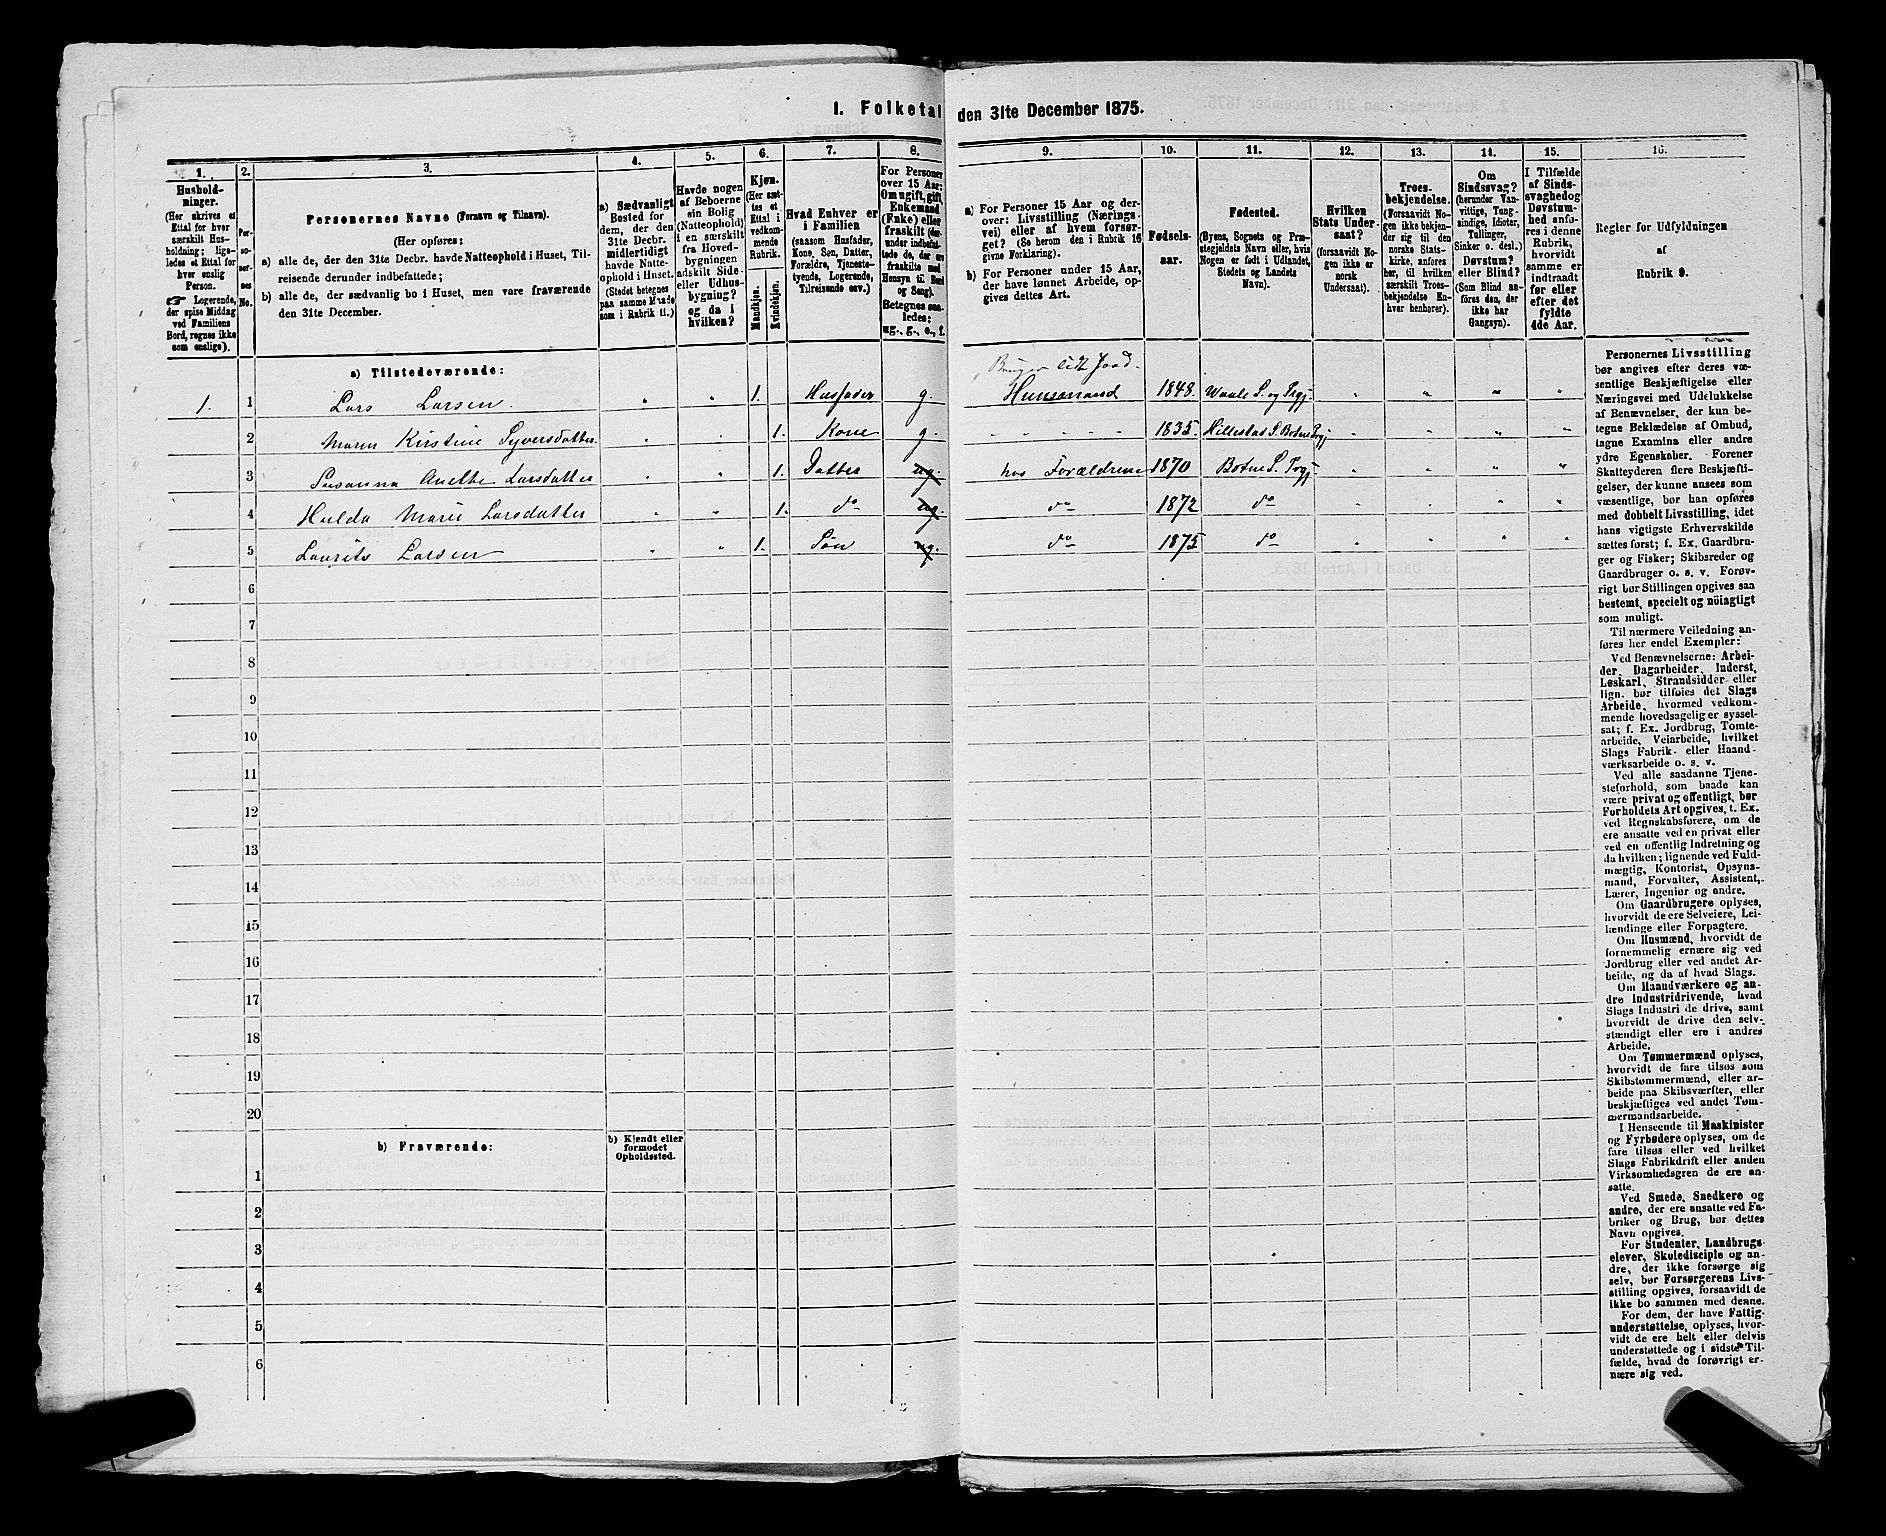 I. Folketal den 31te December 1875.
1.
Hushold-
ninger.
(Her skrives et
Ettal for hver
særskilt Hus-
holdning; lige-
ledes et Ettal for
hver enslig
Person.
Logerende,
der spise Middag
ved Familiens
Bord, regnes ikke
som enslige).
2.
Per-
so-
ner-
nes
No.
3.
Personernes Navne (Fornavn og Tilnavn).
(Her opføres:
a) alle de, der den 31te Decbr. havde Natteophold i Huset, Til-
reisende derunder indbefattede;
b) alle de, der sædvanlig bo i Huset, men vare fraværende
den 31te December.
4.
a) Sædvanligt
Bosted for
dem, der den
31te Decbr.
midlertidigt
havde Natte-
ophold i Huset.
(Stedet betegnes
paa samme Maade
som i Rubrik 11.)
5.
Havde nogen
af Beboerne
sin Bolig
(Natteophold)
i en særskilt
fra Hoved-
bygningen
adskilt Side-
eller Udhus-
bygning?
og da i
hvilken?
6.
Kjøn.
(Her sæt-
tes et
Ettal i
vedkom-
mende
Rubrik.
Mandkjøn.
Kvindekjøn.
7.
Hvad Enhver er
i Familien
(saasom Husfader,
Kone, Søn, Datter,
Forældre, Tjeneste-
tyende, Logerende,
Tilreisende osv.)
8.
For Personer
over 15 Aar:
Om ugift, gift,
Enkemand
(Enke) eller
fraskilt (der-
under indbefat-
tede de, der ere
fraskilte med
Hensyn til Bord
og Seng).
Betegnes saa-
ledes:
ug., g., e., f.
9.
a) For Personer 15 Aar og der-
over: Livsstilling (Nærings
vei) eller af hvem forsør-
get? (Se herom den i Rubrik 16
givne Forklaring).
b) For Personer under 15 Aar,
der have lønnet Arbeide, op-
gives dettes Art.
10.
Fødsels-
aar.
11.
Fødested.
(Byens, Sognets og Præ-
stegjeldets Navn eller, hvis
Nogen er født i Udlandet,
Stedets og Landets
Navn).
12.
Hvilken
Stats Under-
saat?
(forsaavidt No-
gen ikke er
norsk
Undersaat).
13.
Troes-
bekjendelse.
(Forsaavidt No-
gen ikke bekjen-
der sig til den
norske Stats-
kirke, anføres
her, til hvilken
særskilt Troes-
bekjendelse En-
hver henhører).
14.
Om
Sindssvag?
(herunder Van-
vittige, Tung-
sindige, Idioter,
Tullinger,
Sinker o. desl.)
Døvstum?
eller Blind?
(Som Blind an-
føres den, der
ikke har
Gangsyn).
15.
I Tilfælde
af Sinds-
svaghed og
Døvstum-
hed anfø-
res i denne
Rubrik,
hvorvidt
samme er
indtraadt
før eller
efter det
fyldte
4de Aar.
16.
Regler for Udfyldningen
af
Rubrik 9.
a) Tilstedeværende:
Bruger lidt Jord.
1. 1 Lars Larsen „ „ 1. Husfader g. Husmand 1848. Waale S. og Prgj. „ „ „ „
2 Maren Kirstine Syversdatter „ „ 1. Kone g. „ „ „ „ „ 1835. Hillestad S. Botne Prgj „ „ „ „
3 Susanna Anette Larsdatter „ „ 1. Datter ug. hos Forældrene 1870 Botne S. Prgj „ „ „ „
4 Hulda Marie Larsdatter „ „ 1. do ug. do 1872 do „ „ „ „
5 Laurits Larsen „ „ 1. Søn ug. do 1875 do „ „ „ „
6
7
8
9
10
11
12
13
14
15
16
17
18
19
20
b) Fraværende:
b) Kjendt eller
formodet
Opholdssted.
1
2
3
4
5
6
Personernes Livsstilling
bør angives efter deres væ-
sentlige Beskjæftigelse eller
Næringsvei med Udelukkelse
af Benævnelser, der kun be-
tegne Beklædelse af Ombud,
tagne Examina eller andre
ydre Egenskaber. Forener
Skatteyderen flere Beskjæfti-
gelser, der kunne ansees som
væsentlige, bør han opføres
med dobbelt Livsstilling, idet
hans vigtigste Erhvervskilde
sættes først; f. Ex. Gaardbru-
ger og Fisker; Skibsreder og
Gaardbruger o. s. v. Forøv-
rigt bør Stillingen opgives saa
bestemt, specielt og nöiagtigt
som muligt.
Til nærmere Veiledning an-
føres her endel Exempler:
Ved Benævnelserne: Arbei-
der, Dagarbeider, Inderst,
Løskarl, Strandsidder eller
lign. bør tilføies det Slags
Arbeide, hvormed vedkom-
mende hovedsagelig er syssel-
sat; f. Ex. Jordbrug, Tomte-
arbeide, Veiarbeide, hvilket
Slags Fabrik- eller Haand-
værksarbeide o. s. v.
Ved alle saadanne Tjene-
steforhold, som baade kan
være privat og offentligt, bør
Forholdets Art opgives, t. Ex.
ved Regnskabsførere, om de
ere ansatte ved en privat eller
ved en offentlig Indretning og
da hvilken; lignende ved Fuld-
mægtig, Kontorist, Opsyns-
mand, Forvalter, Assistent,
Lærer, Ingeniør og andre.
Om Gaardbrugere oplyses,
hvorvidt de ere Selveiere, Lei-
lændinge eller Forpagtere.
Om Husmænd, hvorvidt de
fornemmelig ernære sig ved
Jordbrug eller ved andet Ar-
beide, og da af hvad Slags.
Om Haandværkere og an-
dre Industridrivende, hvad
Slags Industri de drive, samt
hvorvidt de drive den selv-
stændigt eller ere i andres
Arbeide.
Om Tømmermænd oplyses,
hvorvidt de fare tilsøs som
Skibstømmermænd, eller ar-
beide paa Skibsværfter, eller
beskjæftiges ved andet Tøm-
mermandsarbeide.
I Henseende til Maskinister
og Fyrbødere oplyses, om de
fare tilsøs eller ved hvilket
Slags Fabrikdrift eller anden
Virksomhedsgren de ere an-
satte.
Ved Smede, Snedkere og
andre, der ere ansatte ved Fa-
briker og Brug, bør dettes
Navn opgives.
For Studenter, Landbrugs-
elever, Skoledisciple og an-
dre, der ikke forsørge sig
selv, bør Forsørgerens Livs-
stilling opgives, forsaavidt de
ikke bo sammen med denne.
For dem, der have Fattig-
understøttelse, oplyses, hvor-
vidt de ere helt eller delvis
understøttede og i sidste Til-
fælde, hvad de forøvrigt er-
nære sig ved.